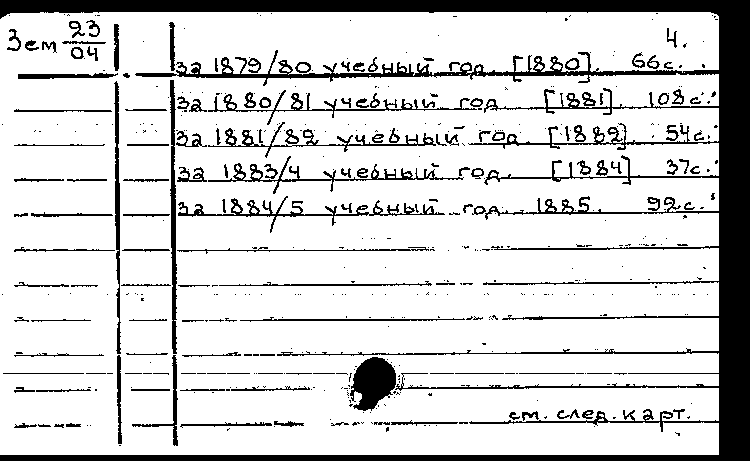 Зем 23/04
4.
за 1879/80 учебный год. [1880]. 66с.
за 1880/81 учебный год. [1881]. 108с.
за 1881/82 учебный год. [1882]. 54с.
за 1883/4 учебный год. [1884]. 37с.
за 1884/5 учебный год. 1885. 92с.
см. след. карт.